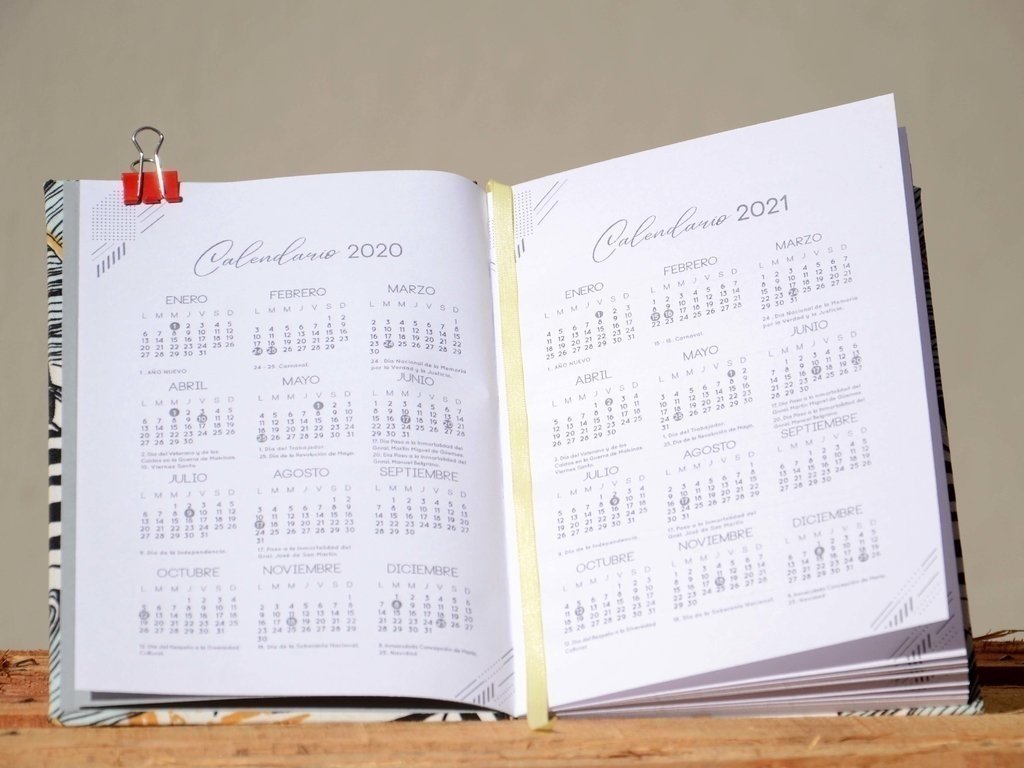 Calendario 2020
ENERO
L M M J V S D
1 2 3 4 5
6 7 8 9 10 11 12
13 14 15 16 17 18 19
20 21 22 23 24 25 26
27 28 29 30 31
1. AÑO NUEVO
FEBRERO
L M M J V S D
1 2
3 4 5 6 7 8 9
10 11 12 13 14 15 16
17 18 19 20 21 22 23
24 25 26 27 28 29
24 - 25. Carnaval.
MARZO
L M M J V S D
1
2 3 4 5 6 7 8
9 10 11 12 13 14 15
16 17 18 19 20 21 22
23 24 25 26 27 28 29
30 31
24 . Día Nacional de la Memoria
por la Verdad y la Justicia.
ABRIL
L M M J V S D
1 2 3 4 5
6 7 8 9 10 11 12
13 14 15 16 17 18 19
20 21 22 23 24 25 26
27 28 29 30
2. Día del Veterano y de los
Caídos en la Guerra de Malvinas.
10. Viernes Santo.
MAYO
L M M J V S D
1 2 3
4 5 6 7 8 9 10
11 12 13 14 15 16 17
18 19 20 21 22 23 24
25 26 27 28 29 30 31
1. Día del Trabajador.
25. Día de la Revolución de Mayo.
JUNIO
L M M J V S D
1 2 3 4 5 6 7
8 9 10 11 12 13 14
15 16 17 18 19 20 21
22 23 24 25 26 27 28
29 30
17. Día Paso a la Inmortalidad del
Gral. Martín Miguel de Güemes.
20. Día Paso a la Inmortalidad del
Gral. Manuel Belgrano.
JULIO
L M M J V S D
1 2 3 4 5
6 7 8 9 10 11 12
13 14 15 16 17 18 19
20 21 22 23 24 25 26
27 28 29 30 31
9. Día de la Independencia.
AGOSTO
L M M J V S D
1 2
3 4 5 6 7 8 9
10 11 12 13 14 15 16
17 18 19 20 21 22 23
24 25 26 27 28 29 30
31
17. Paso a la Inmortalidad del
Gral. José de San Martín
SEPTIEMBRE
L M M J V S D
1 2 3 4 5 6
7 8 9 10 11 12 13
14 15 16 17 18 19 20
21 22 23 24 25 26 27
28 29 30
OCTUBRE
L M M J V S D
1 2 3 4
5 6 7 8 9 10 11
12 13 14 15 16 17 18
19 20 21 22 23 24 25
26 27 28 29 30 31
12. Día del Respeto a la Diversidad
Cultural.
NOVIEMBRE
L M M J V S D
1
2 3 4 5 6 7 8
9 10 11 12 13 14 15
16 17 18 19 20 21 22
23 24 25 26 27 28 29
30
18. Día de la Soberanía Nacional.
DICIEMBRE
L M M J V S D
1 2 3 4 5 6
7 8 9 10 11 12 13
14 15 16 17 18 19 20
21 22 23 24 25 26 27
28 29 30 31
8. Inmaculada Concepción de María.
25. Navidad
Calendario 2021
ENERO
L M M J V S D
1 2 3
4 5 6 7 8 9 10
11 12 13 14 15 16 17
18 19 20 21 22 23 24
25 26 27 28 29 30 31
1. AÑO NUEVO
FEBRERO
L M M J V S D
1 2 3 4 5 6 7
8 9 10 11 12 13 14
15 16 17 18 19 20 21
22 23 24 25 26 27 28
15 - 16. Carnaval.
MARZO
L M M J V S D
1 2 3 4 5 6 7
8 9 10 11 12 13 14
15 16 17 18 19 20 21
22 23 24 25 26 27 28
29 30 31
24 . Día Nacional de la Memoria
por la Verdad y la Justicia.
ABRIL
L M M J V S D
1 2 3 4
5 6 7 8 9 10 11
12 13 14 15 16 17 18
19 20 21 22 23 24 25
26 27 28 29 30
2. Día del Veterano y de los
Caídos en la Guerra de Malvinas.
Viernes Santo.
MAYO
L M M J V S D
1 2
3 4 5 6 7 8 9
10 11 12 13 14 15 16
17 18 19 20 21 22 23
24 25 26 27 28 29 30
31
1. Día del Trabajador.
25. Día de la Revolución de Mayo.
JUNIO
L M M J V S D
1 2 3 4 5 6
7 8 9 10 11 12 13
14 15 16 17 18 19 20
21 22 23 24 25 26 27
28 29 30
17. Día Paso a la Inmortalidad del
Gral. Martín Miguel de Güemes.
20. Día Paso a la Inmortalidad del
Gral. Manuel Belgrano.
JULIO
L M M J V S D
1 2 3 4
5 6 7 8 9 10 11
12 13 14 15 16 17 18
19 20 21 22 23 24 25
26 27 28 29 30 31
9. Día de la Independencia.
AGOSTO
L M M J V S D
1
2 3 4 5 6 7 8
9 10 11 12 13 14 15
16 17 18 19 20 21 22
23 24 25 26 27 28 29
30 31
17. Paso a la Inmortalidad del
Gral. José de San Martín
SEPTIEMBRE
L M M J V S D
1 2 3 4 5
6 7 8 9 10 11 12
13 14 15 16 17 18 19
20 21 22 23 24 25 26
27 28 29 30
OCTUBRE
L M M J V S D
1 2 3
4 5 6 7 8 9 10
11 12 13 14 15 16 17
18 19 20 21 22 23 24
25 26 27 28 29 30 31
12. Día del Respeto a la Diversidad
Cultural.
NOVIEMBRE
L M M J V S D
1 2 3 4 5 6 7
8 9 10 11 12 13 14
15 16 17 18 19 20 21
22 23 24 25 26 27 28
29 30
18. Día de la Soberanía Nacional.
DICIEMBRE
L M M J V S D
1 2 3 4 5
6 7 8 9 10 11 12
13 14 15 16 17 18 19
20 21 22 23 24 25 26
27 28 29 30 31
8. Inmaculada Concepción de María.
25. Navidad